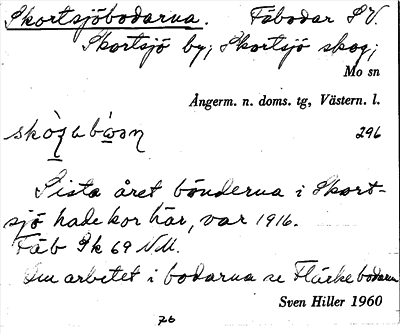 Skortsjöbodarna. Fäbodar S.V.
Skortsjö by; Skortsjö skog;
Mo sn
Ångerm. n. doms. tg, Västern. l.
296
Sista året bönderna i Skort-
sjö hade kor här, var 1916.
Fäb Gk 69 NM.
Om arbetet i bodarna se Flärkebodarna
Sven Hiller 1960
26